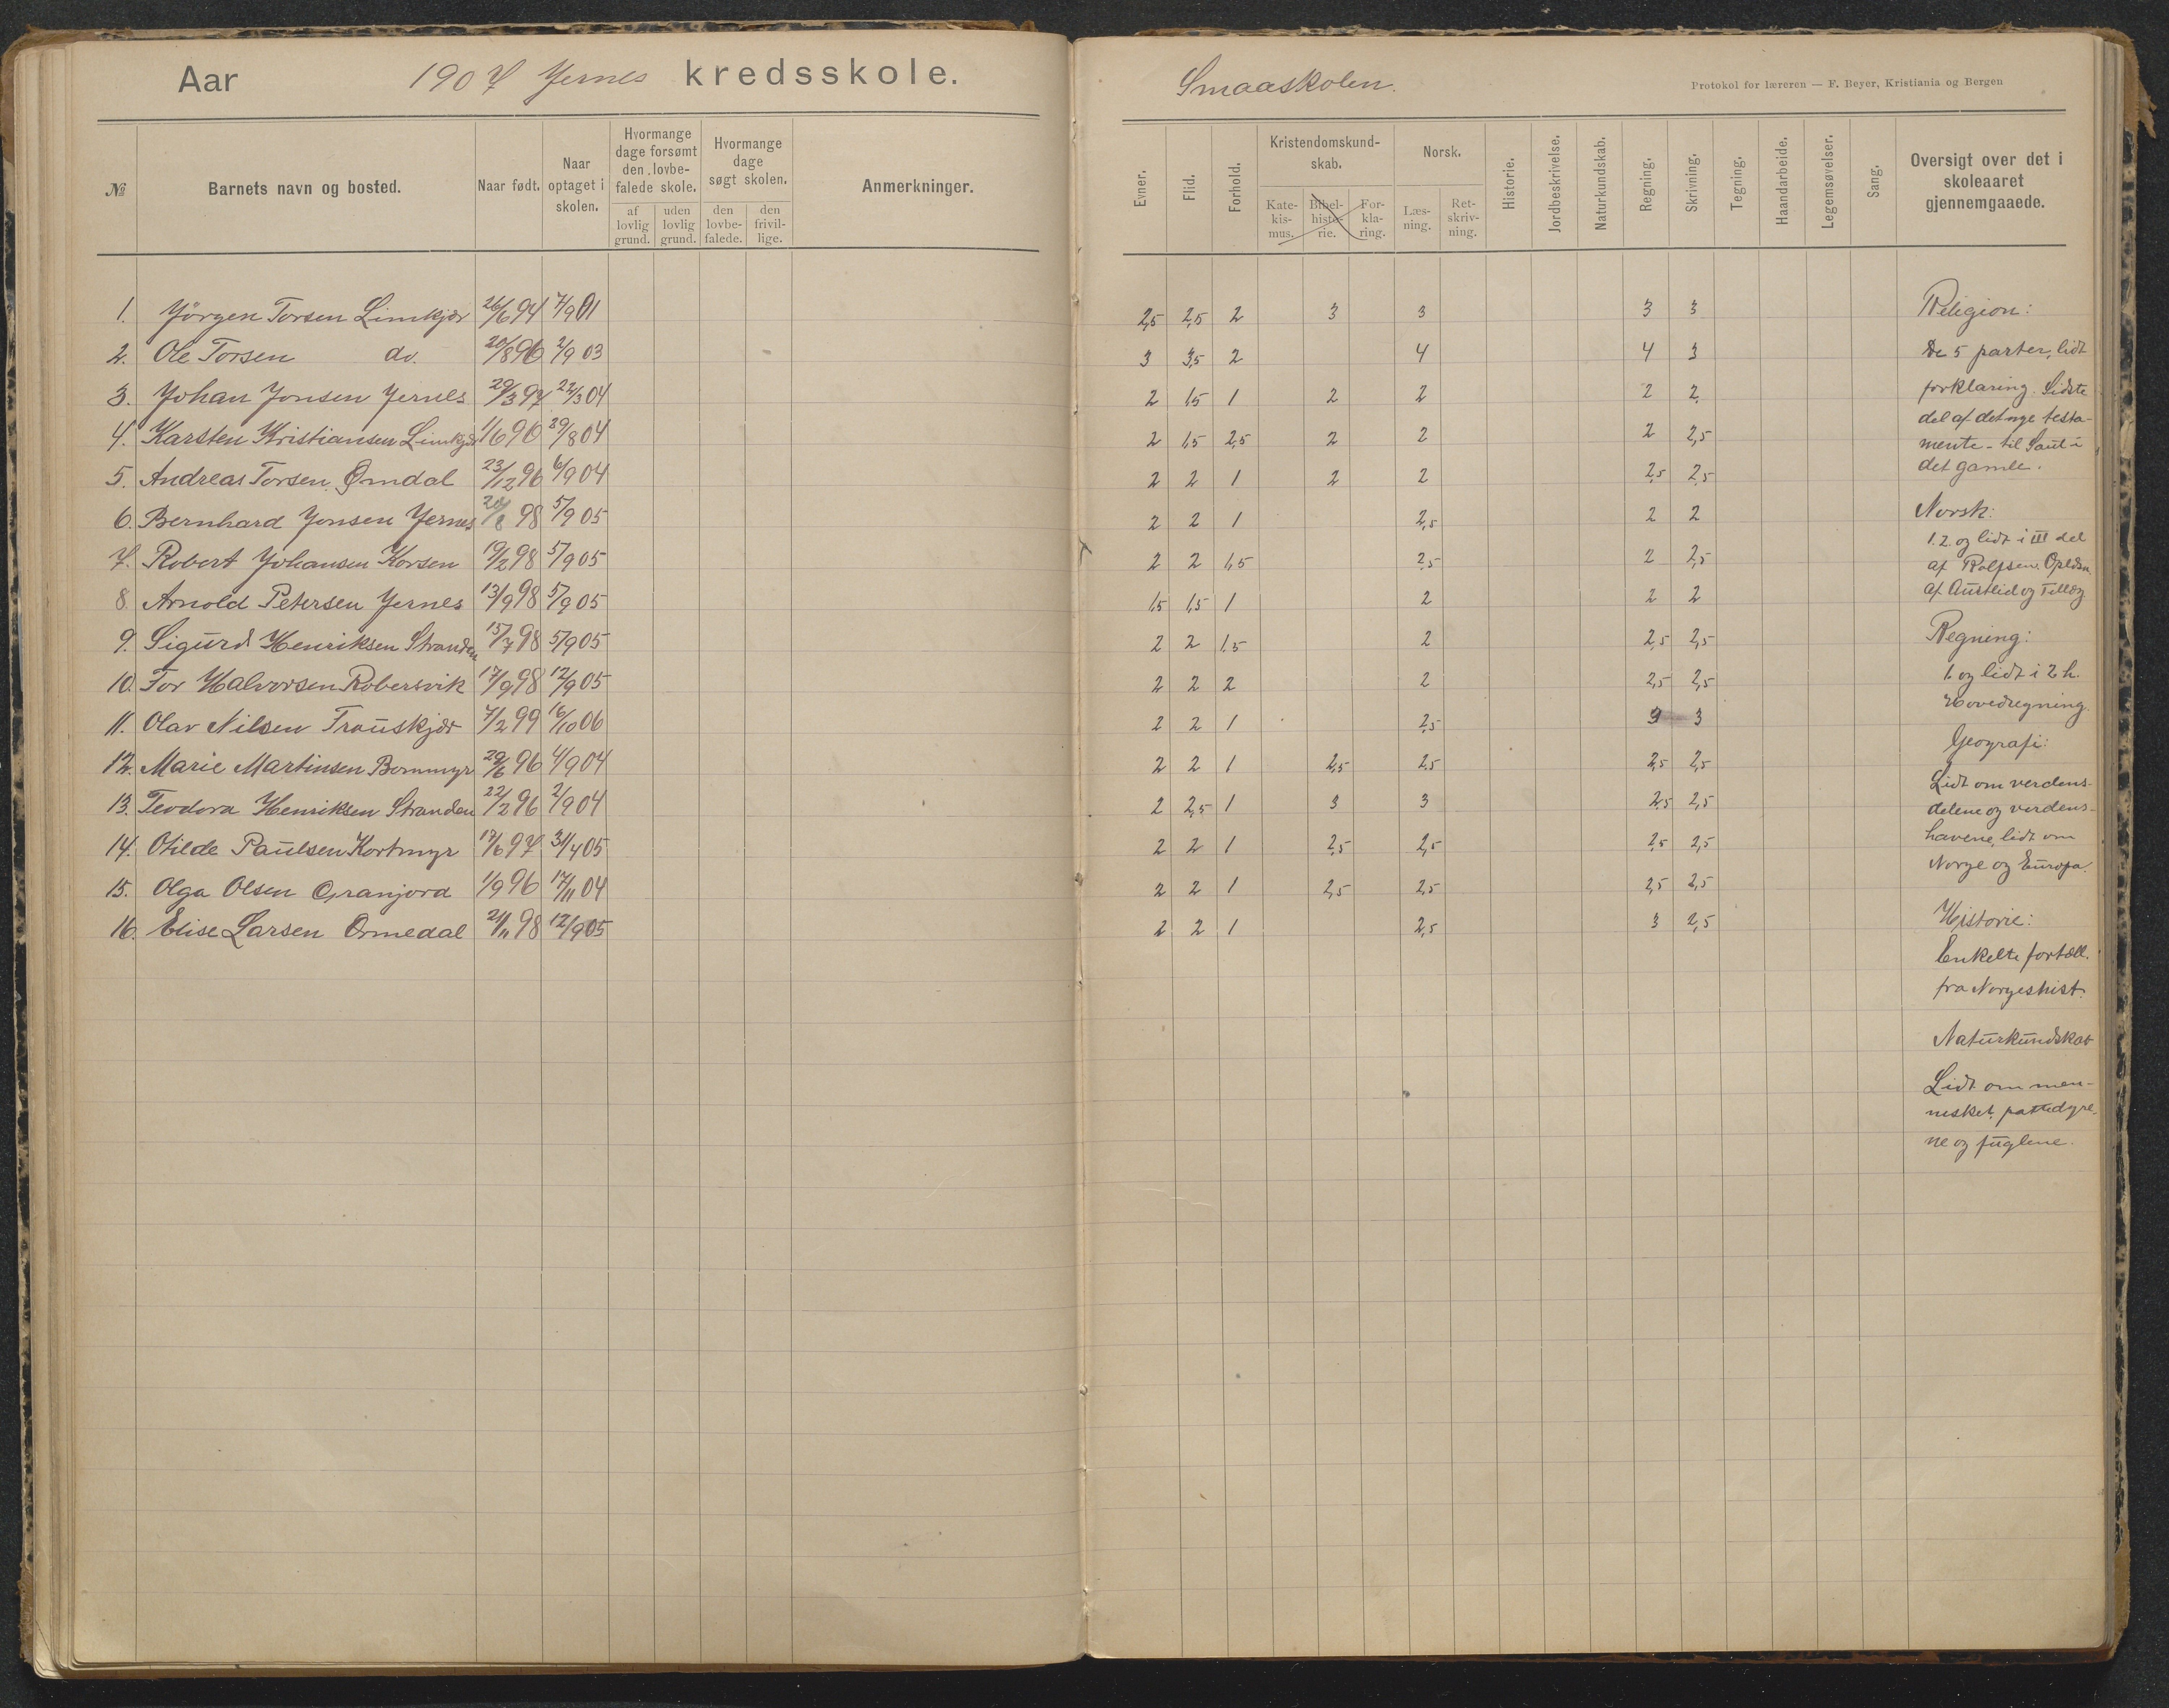 Aar 1907 Jernes kredsskole.
№ Barnets navn og bosted. Naar født. Naar optaget i skolen. Hvormange dage forsømt den lovbefalede skole. af lovlig grund. uden lovlig grund. Hvormange dage søgt skolen. den lovbefalede. den frivillige. Anmerkninger.
1. Jörgen Torsen Limkjær 26/6 94 7/9 01
2. Ole Torsen do. 20/8 96 2/9 03
3. Johan Jonsen Jernes 29/3 97 22/3 04
4. Karsten Kristiansen Limkjær 1/6 96 29/8 04
5. Andreas Torsen Ømdal 23/12 96 6/9 04
6. Bernhard Jonsen Jernes 20/8 98 5/9 05
7. Robert Johansen Korsen 19/2 98 5/9 05
8. Arnold Petersen Jernes 13/9 98 5/9 05
9. Sigurd Henriksen Stranden 15/7 98 5/9 05
10. Tor Halvorsen Robersvik 17/9 98 12/9 05
11. Olav Nilsen Trauskjær 7/2 99 16/10 06
12. Marie Martinsen Bommyr 29/6 96 4/9 04
13. Teodora Henriksen Stranden 22/2 96 2/9 04
14. Otilde Paulsen Kortmyr 17/6 97 3/4 05
15. Olga Olsen Granjord 1/9 96 17/11 04
16. Elise Larsen Ormedal 21/11 98 12/9 05
Smaaskolen.
Protokol for læreren — F. Beyer, Kristiania og Bergen
Evner. Flid. Forhold. Kristendomskundskab. Katekismus. Bibelhistorie. Forklaring. Norsk. Læsning. Retskrivning. Historie. Jordbeskrivelse. Naturkundskab. Regning. Skrivning. Tegning. Haandarbeide. Legemsøvelser. Sang. Oversigt over det i skoleaaret gjennemgaaede.
2,5 2,5 2 3 3 3 3
3 3,5 2 4 4 3
2 1,5 1 2 2 2 2
2 1,5 2,5 2 2 2 2,5
2 2 1 2 2 2,5 2,5
2 2 1 2,5 2 2
2 2 1,5 2,5 2 2,5
1,5 1,5 1 2 2 2
2 2 1.5 2 2,5 2,5
2 2 2 2 2,5 2,5
2 2 1 2,5 3 3
2 2 1 2,5 2,5 2,5 2,5
2 2,5 1 3 3 2,5 2,5
2 2 1 2,5 2,5 2,5 2,5
2 2 1 2,5 2,5 2,5 2,5
2 2 1 2,5 3 2,5
Religion:
De 5 parter, lidt
forklaring. Sidste
del af det nye testa-
mente - til Saul i
det gamle.
Norsk:
1. 2. og lidt i III del
af Rolfsen.
af Austlid og Tillæg
Regning:
1. og lidt i 2 h.
Hovedregning.
Geografi:
Lidt om verdens-
delene og verdens-
havene, lidt om
Norge og Europa.
Historie:
Enkelte fortæll.
fra Norgeshist.
Naturkundskab
Lidt om men-
nesket, pattedyre-
ne og fuglene.